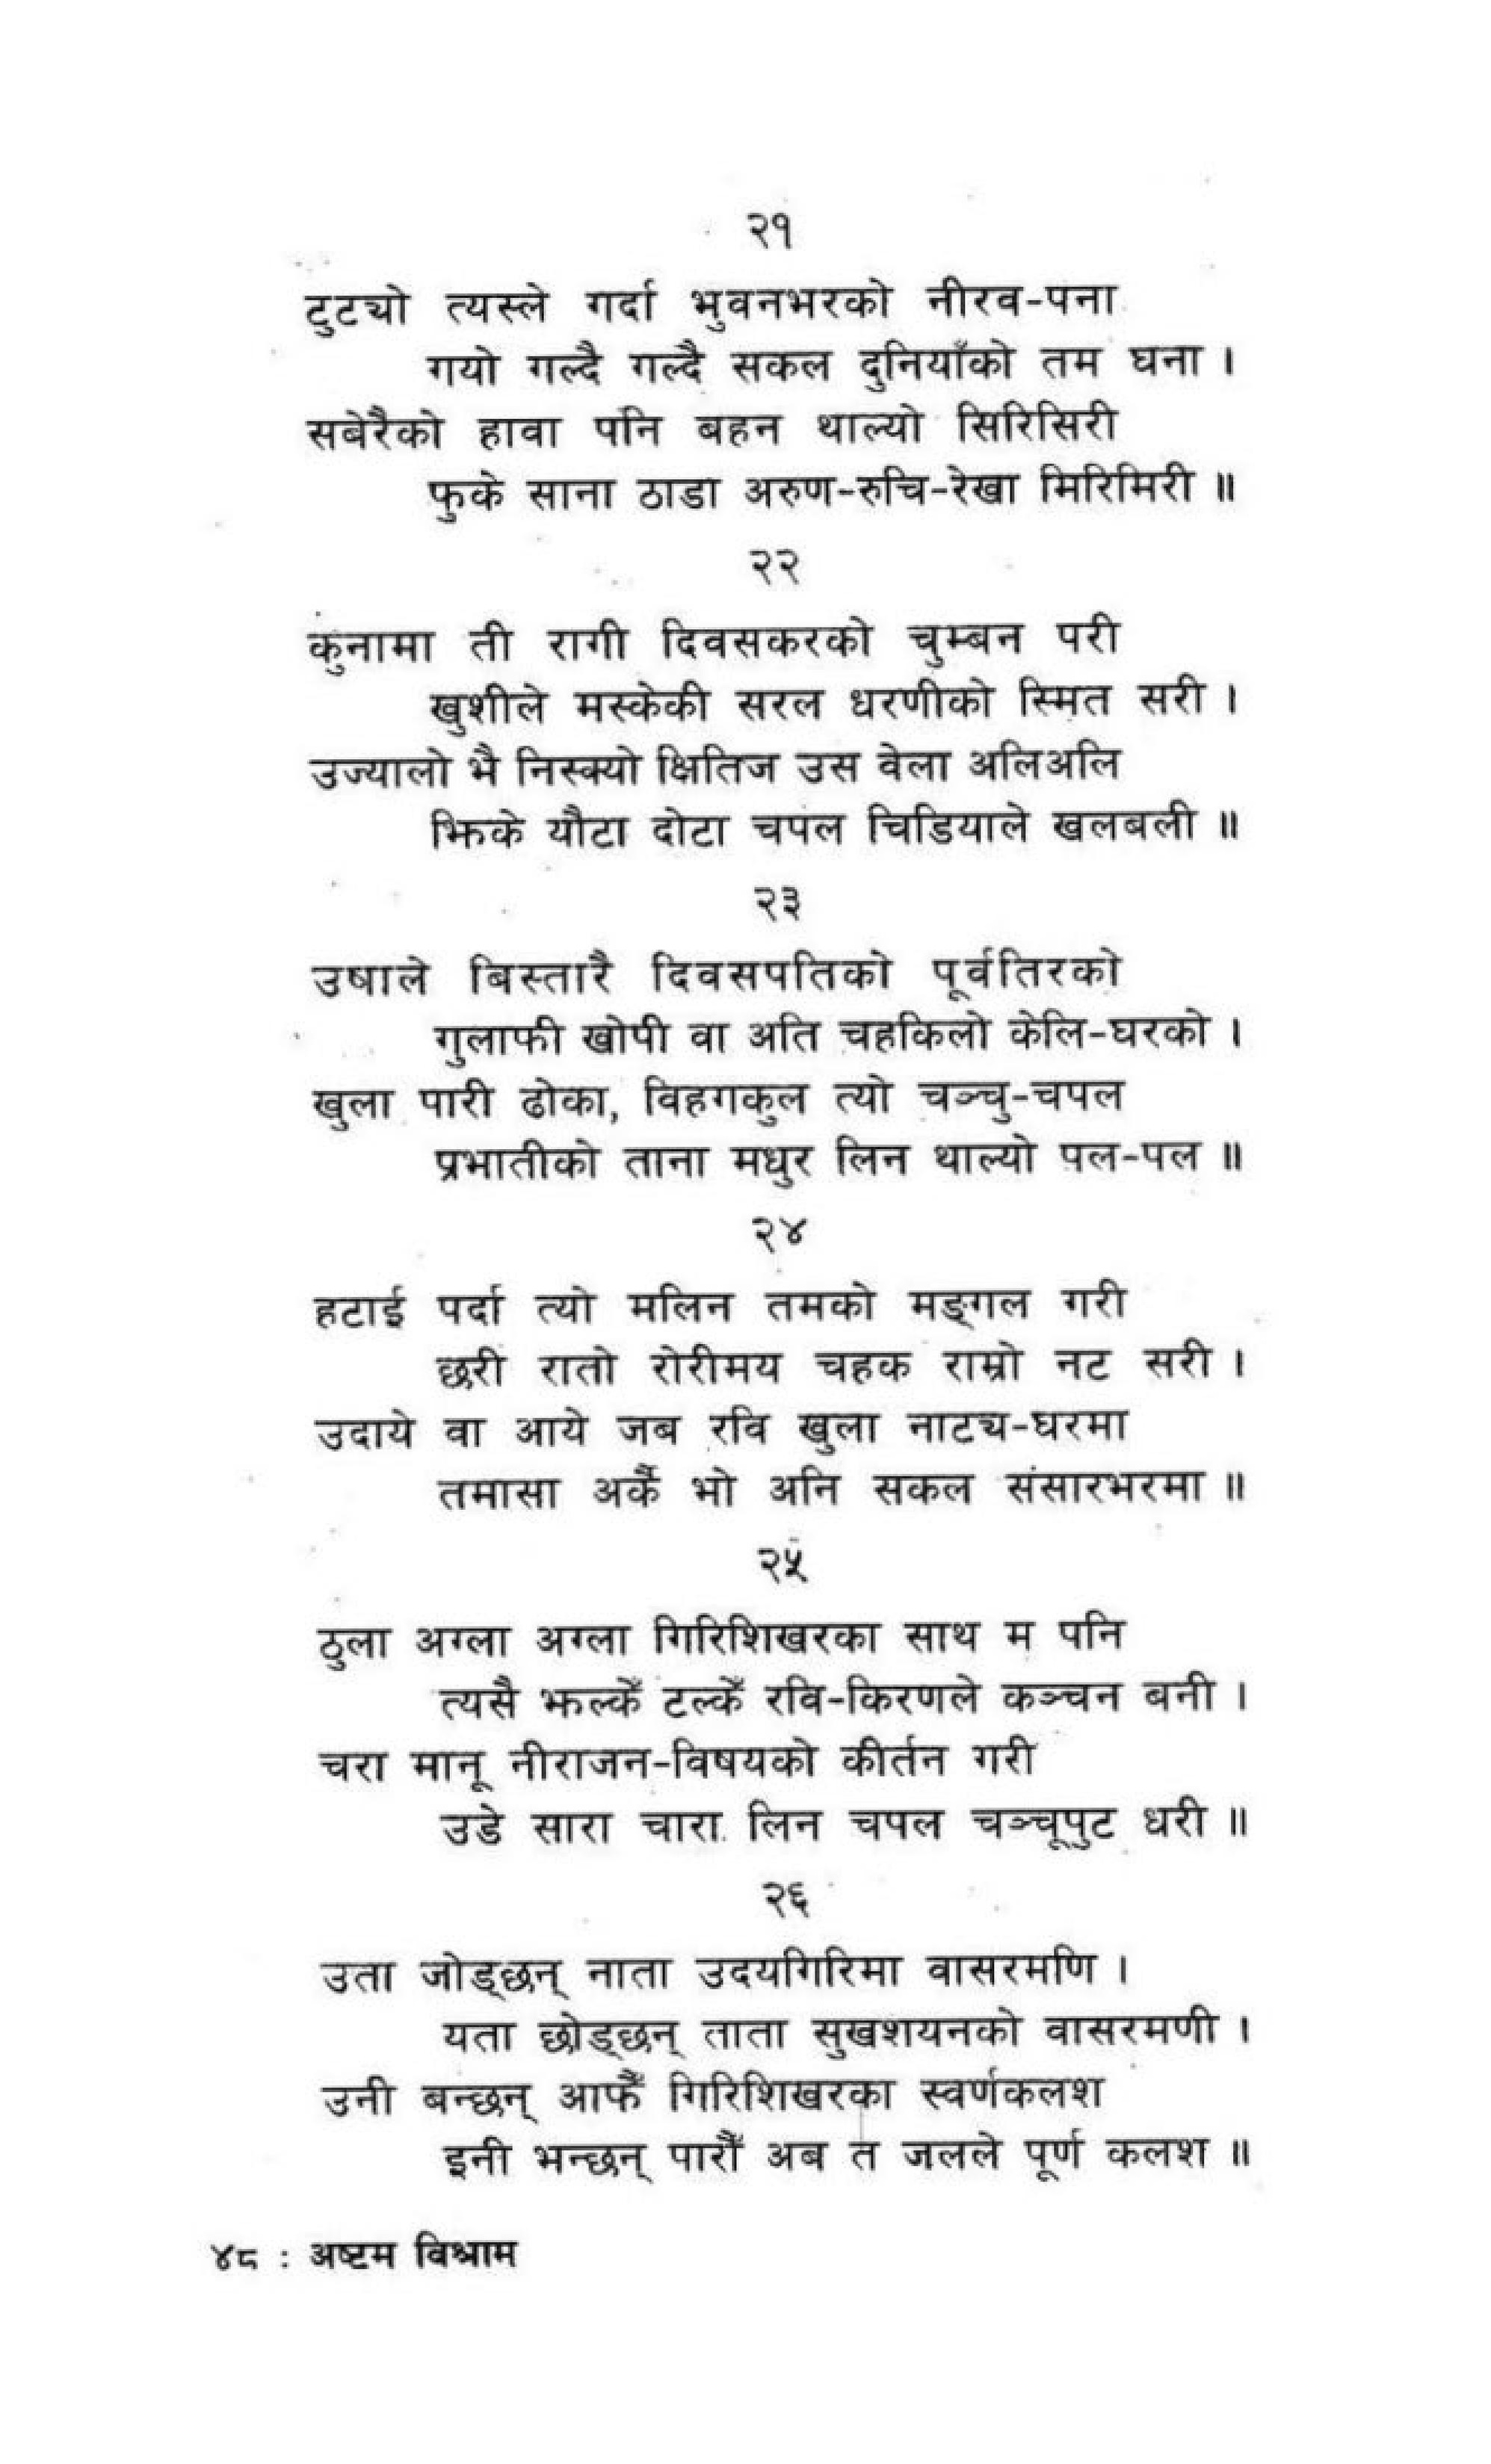 २१
टुट्यो त्यस्ले गर्दा भुवनभरको नीरव-पना
गयो गल्दै गल्दै सकल दुनियाँको तम घना ।
सबेरैको हावा पनि बहन थाल्यो सिरिसिरी
फुके साना ठाडा अरुण-रुचि-रेखा मिरिमिरी ॥
२२
कुनामा ती रागी दिवसकरको चुम्बन परी
खुशीले मस्केकी सरल धरणीको स्मित सरी ।
उज्यालो भै निस्क्यो क्षितिज उस वेला अलिअलि
झिके यौटा दोटा चपल चिडियाले खलबली ॥
२३
उषाले बिस्तारै दिवसपतिको पूर्वतिरको
गुलाफी खोपी वा अति चहकिलो केलि-घरको ।
खुला पारी ढोका, विहगकुल त्यो चञ्चु-चपल
प्रभातीको ताना मधुर लिन थाल्यो पल-पल ॥
२४
हटाई पर्दा त्यो मलिन तमको मङ्गल गरी
छरी रातो रोरीमय चहक राम्रो नट सरी ।
उदाये वा आये जब रवि खुला नाट्य-घरमा
तमासा अर्कै भो अनि सकल संसारभरमा ॥
२५
ठुला अग्ला अग्ला गिरिशिखरका साथ म पनि
त्यसै झल्कें टल्कें रवि-किरणले कञ्चन बनी ।
चरा मानू नीराजन-विषयको कीर्तन गरी
उडे सारा चारा लिन चपल चञ्चूपुट धरी ॥
२६
उता जोड्छन् नाता उदयगिरिमा वासरमणि ।
यता छोड्छन् ताता सुखशयनको वासरमणी ।
उनी बन्छन् आफैँ गिरिशिखरका स्वर्णकलश
इनी भन्छन् पारौँ अब त जलले पूर्ण कलश ॥
४८ : अष्टम विश्राम